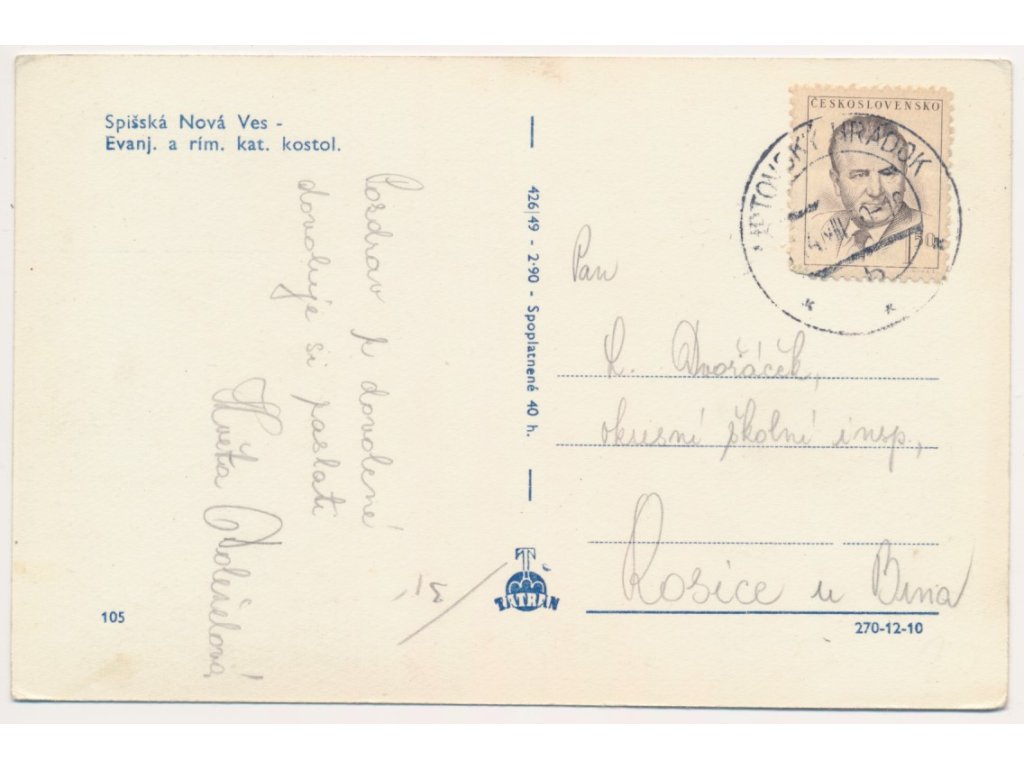 Spišská Nová Ves -
Evanj. a rím. kat. kostol.
Pozdrav z dovolené
dovoluje si poslati
Květa Doleželová
105
426/49 - 2·90 - Spoplatnené 40 h.
TATRAN
ČESKOSLOVENSKO
50h
LIPTOVSKÝ HRÁDOK
Pan
L. Dvořáček,
okresní školní insp.,
Rosice u Brna
270-12-10